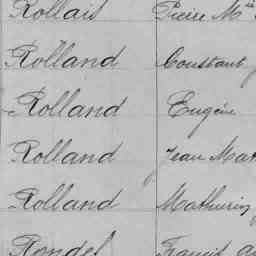 Rollais Pierre M
Rolland Constant
Rolland Eugène
Rolland Jean Mat
Rolland Mathurin
Rondel